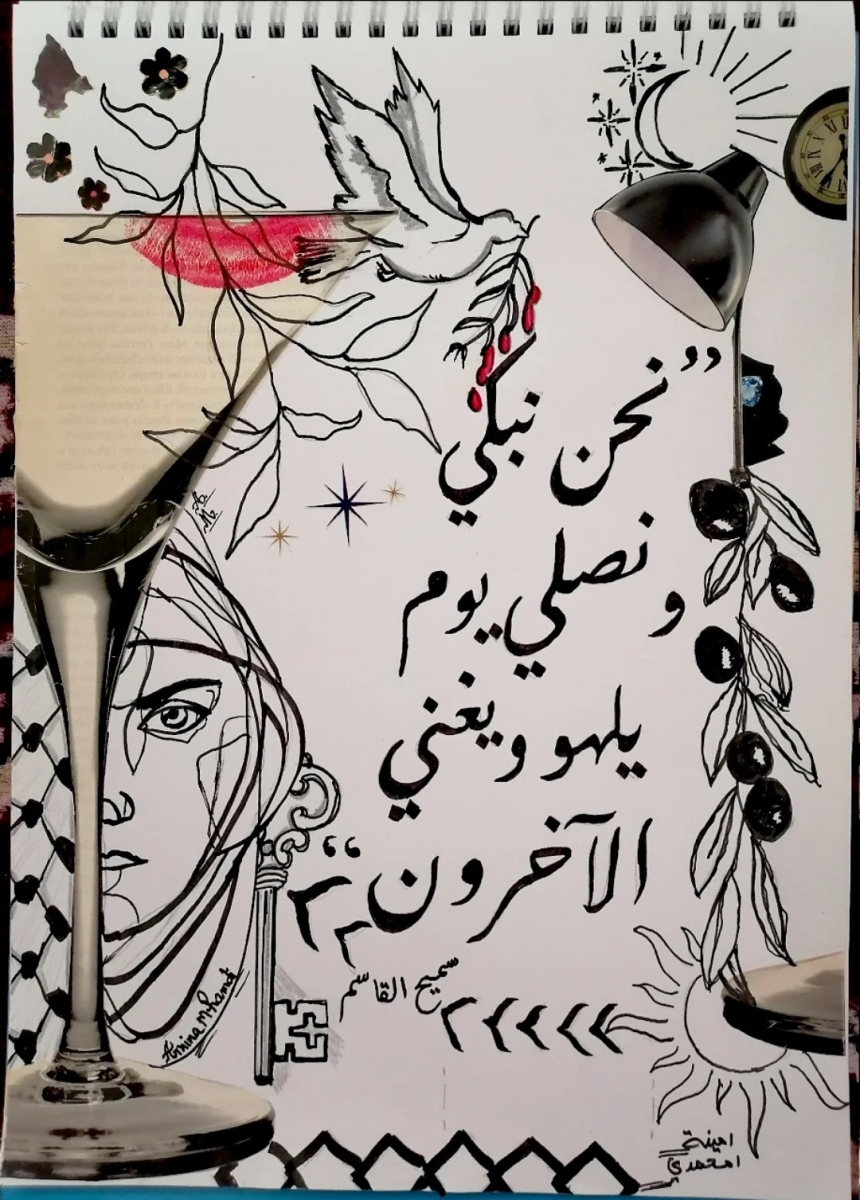 ”نحن نبكي
ونصلي يوم
يلهو ويغني
الآخرون“
سميح القاسم
A.M.
Amina Mhamdi
امينة
امحمدي